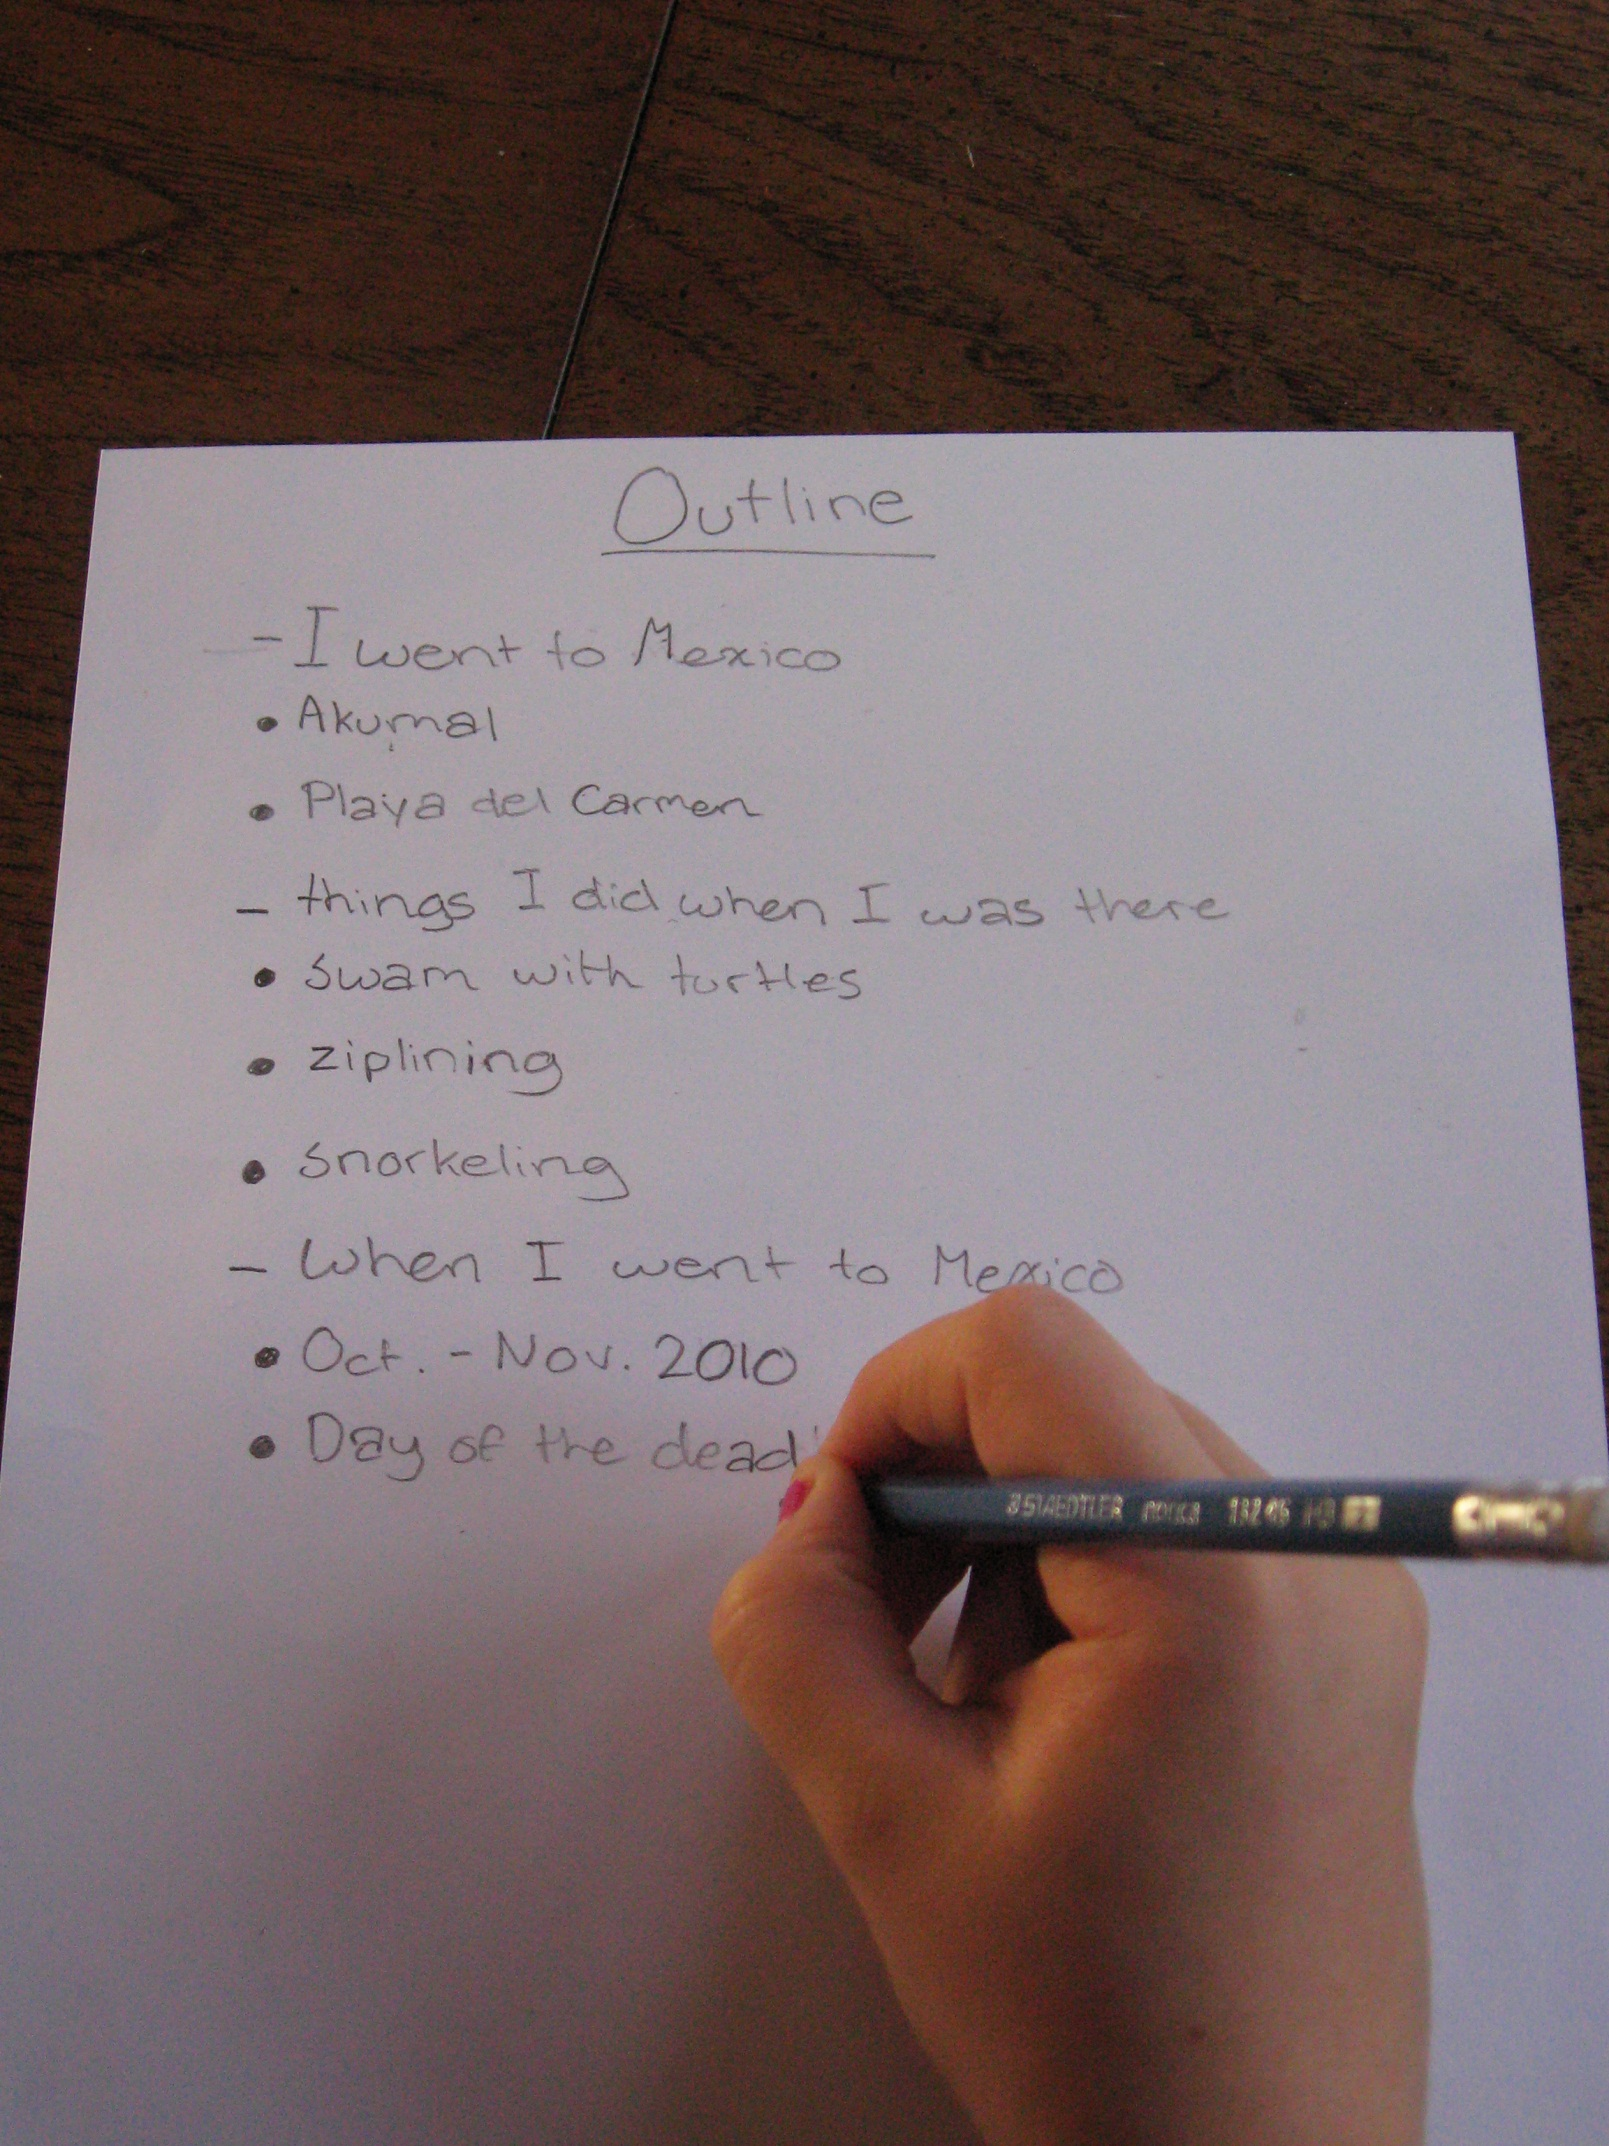 Outline
- I went to Mexico
• Akumal
• Playa del Carmen
- things I did when I was there
• swam with turtles
• ziplining
• snorkeling
- When I went to Mexico
• Oct. - Nov. 2010
• Day of the dead
STAEDTLER norica 132 46 HB 2